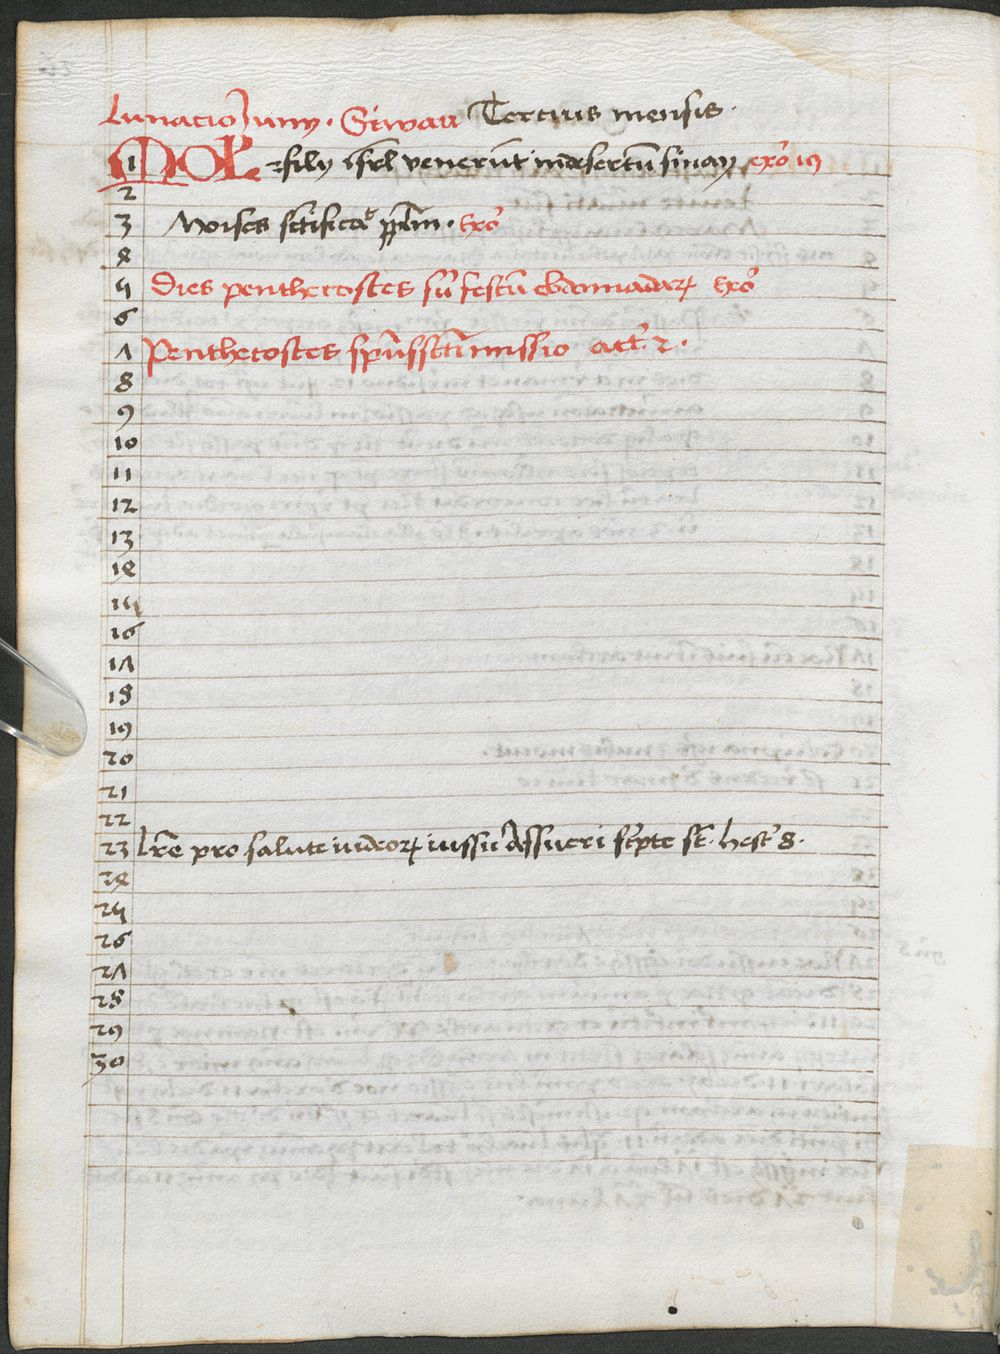 Lunacio Juny. Siwan Tercius mensis.
1 MOL. filij isrl venerūt in desertū sinay exo 19
2
3 Moises sctificat pplm. exo
4
5 Dies penthecostes siu festū ebdomadarꝝ exo
6
7 Penthecostes spūssctī missio act. 2.
8
9
10
11
12
13
14
15
16
17
18
19
20
21
22
23 Lre pro salute iudeorꝝ iussu Assueri scpte st. hest 8.
24
25
26
27
28
29
30